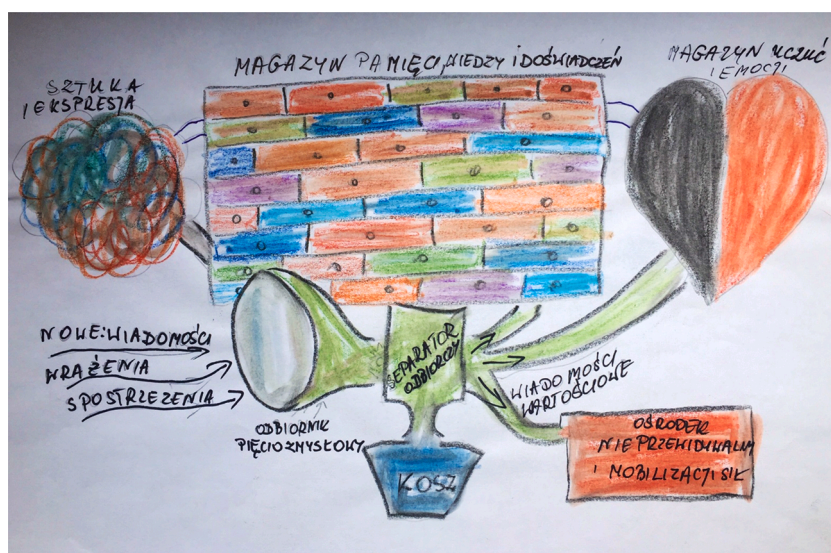 SZTUKA
I EKSPRESJA
MAGAZYN PAMIĘCI, WIEDZY I DOŚWIADCZEŃ
MAGAZYN UCZUĆ
I EMOCJI
NOWE: WIADOMOŚCI
WRAŻENIA
SPOSTRZEŻENIA
ODBIORNIK
PIĘCIOZMYSŁOWY
SEPARATOR
ODBIORCZY
WIADOMOŚCI
WARTOŚCIOWE
KOSZ
OŚRODEK
NIEPRZEWIDYWALNY
I MOBILIZACJI SIŁ